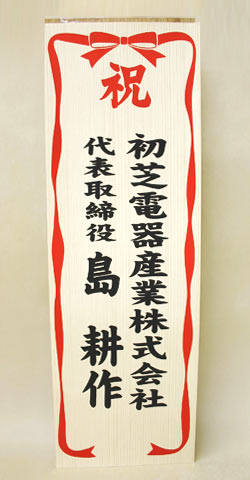 祝
初芝電器産業株式会社
代表取締役 島 耕作